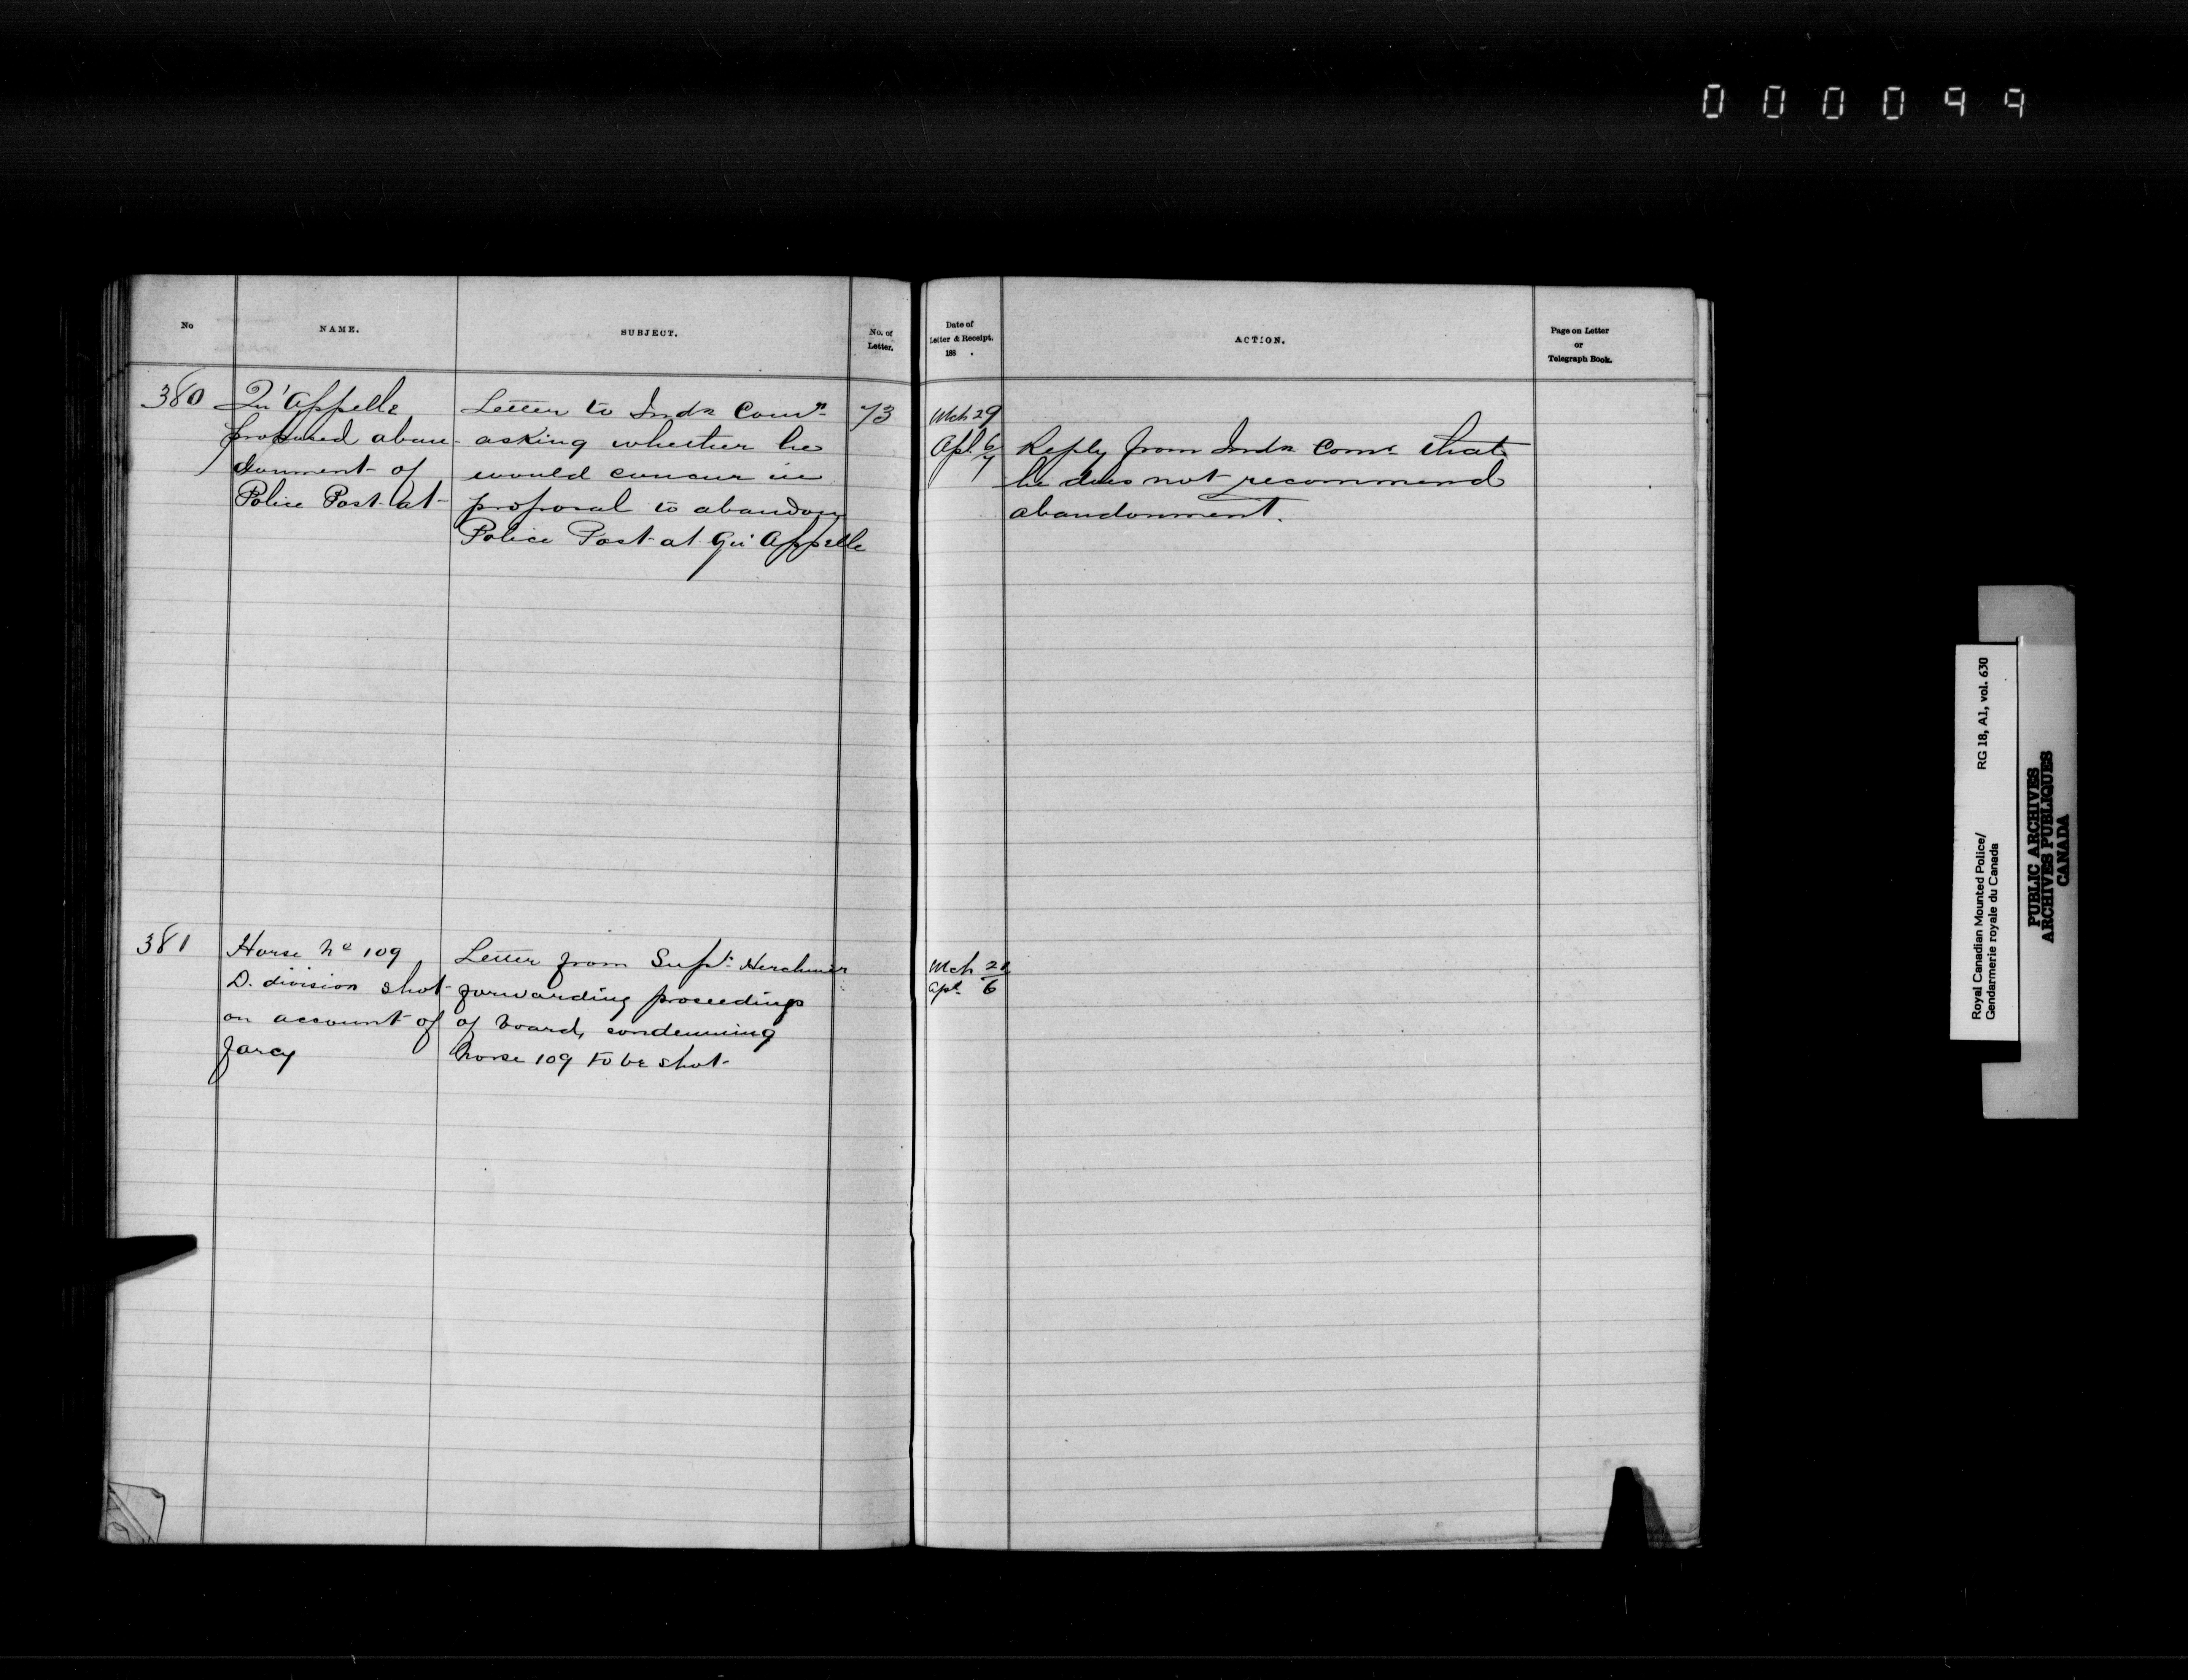 000099
No
NAME.
SUBJECT.
No. of
Letter.
Date of
Letter & Receipt.
188 .
ACTION.
Page on Letter
or
Telegraph Book.
380
Qu'Appelle
proposed aban-
donment of
Police Post at
Letter to Indn Comr
asking whether he
would concur in
proposal to abandon
Police Post at Qu'Appelle
73
Mch 29
Apl. 6/7
Reply from Indn Comr that
he does not recommend
abandonment.
381
Horse No 109
D. division shot
on account of
farcy
Letter from Supt. Herchmer
forwarding proceedings
of board, condemning
horse 109 to be shot
Mch
Apl 6
Royal Canadian Mounted Police/
Gendarmerie royale du Canada
RG 18, A1, vol. 630
PUBLIC ARCHIVES
ARCHIVES PUBLIQUES
CANADA